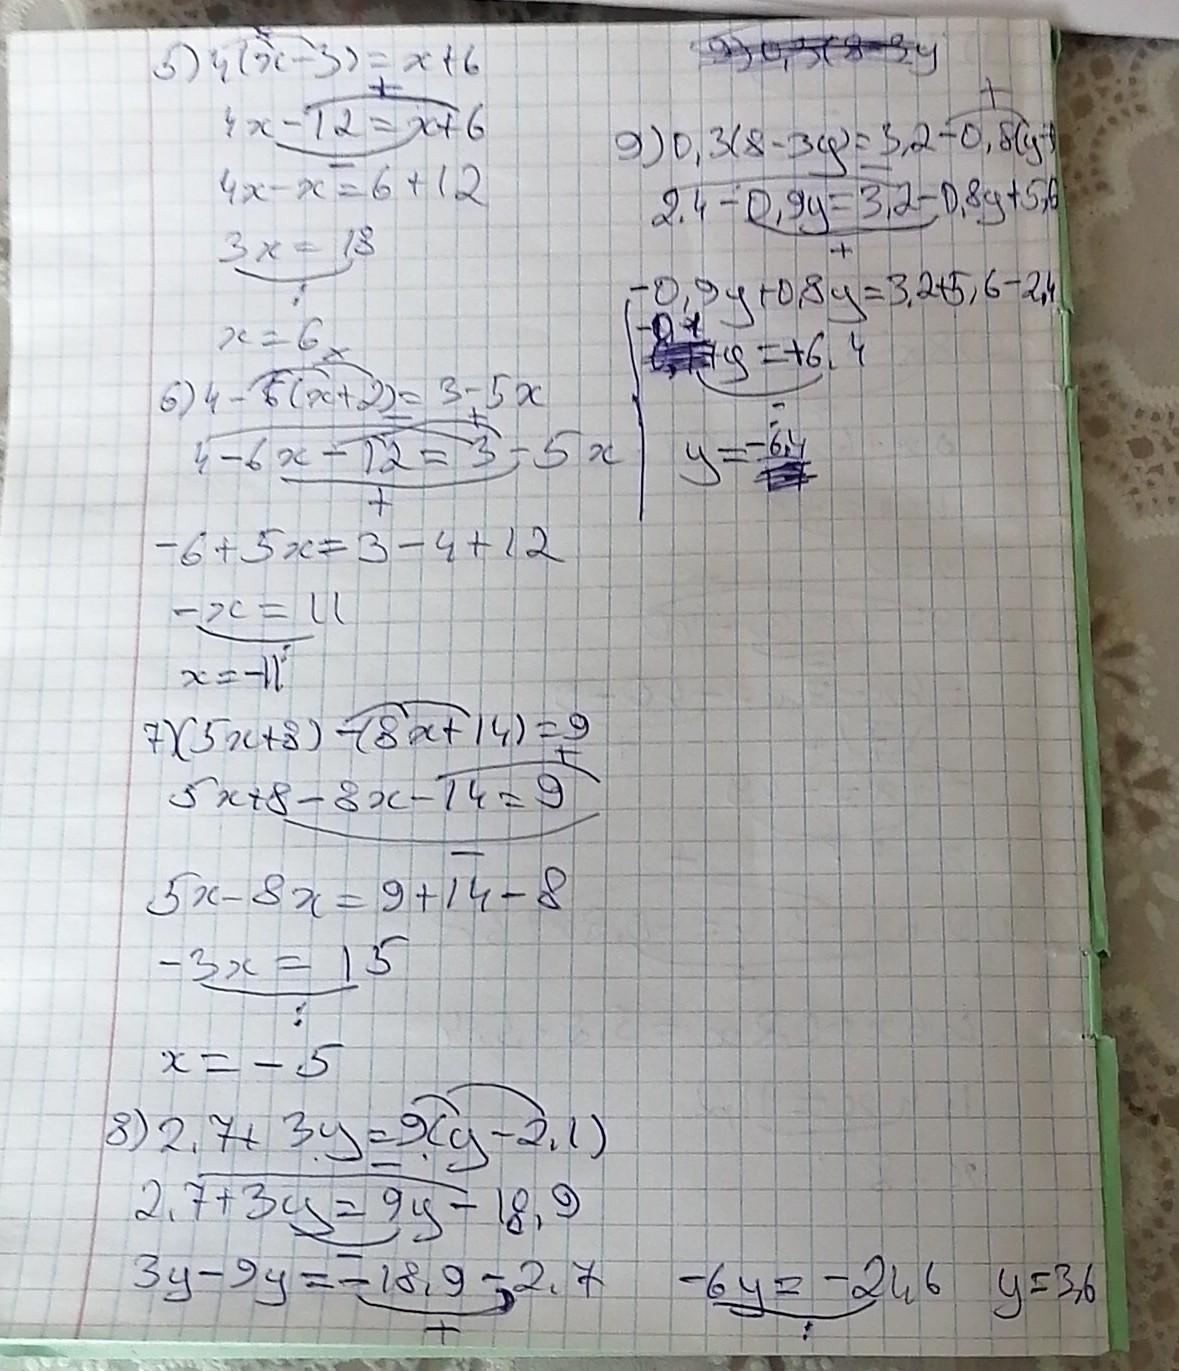 5) 4(x-3) = x+6
4x-12 = x+6
4x-x = 6+12
3x = 18
:
x = 6
6) 4-6(x+2) = 3-5x
4-6x-12 = 3-5x
+
-6+5x = 3-4+12
-x = 11
:
x = -11
7) (5x+8) -(8x+14) = 9
5x+8-8x-14 = 9
5x-8x = 9+14-8
-3x = 15
:
x = -5
8) 2,7+3y = 9(y-2,1)
2,7+3y = 9y-18,9
3y-9y = -18,9-2,7
+
-6y = -21,6
:
y = 3,6
9) 0,3(8-3y) = 3,2-0,8(y-
2.4-0,9y = 3,2-0,8y+5,6
+
-0,9y+0,8y = 3,2+5,6-2,4
y = +6,4
y = -6,4